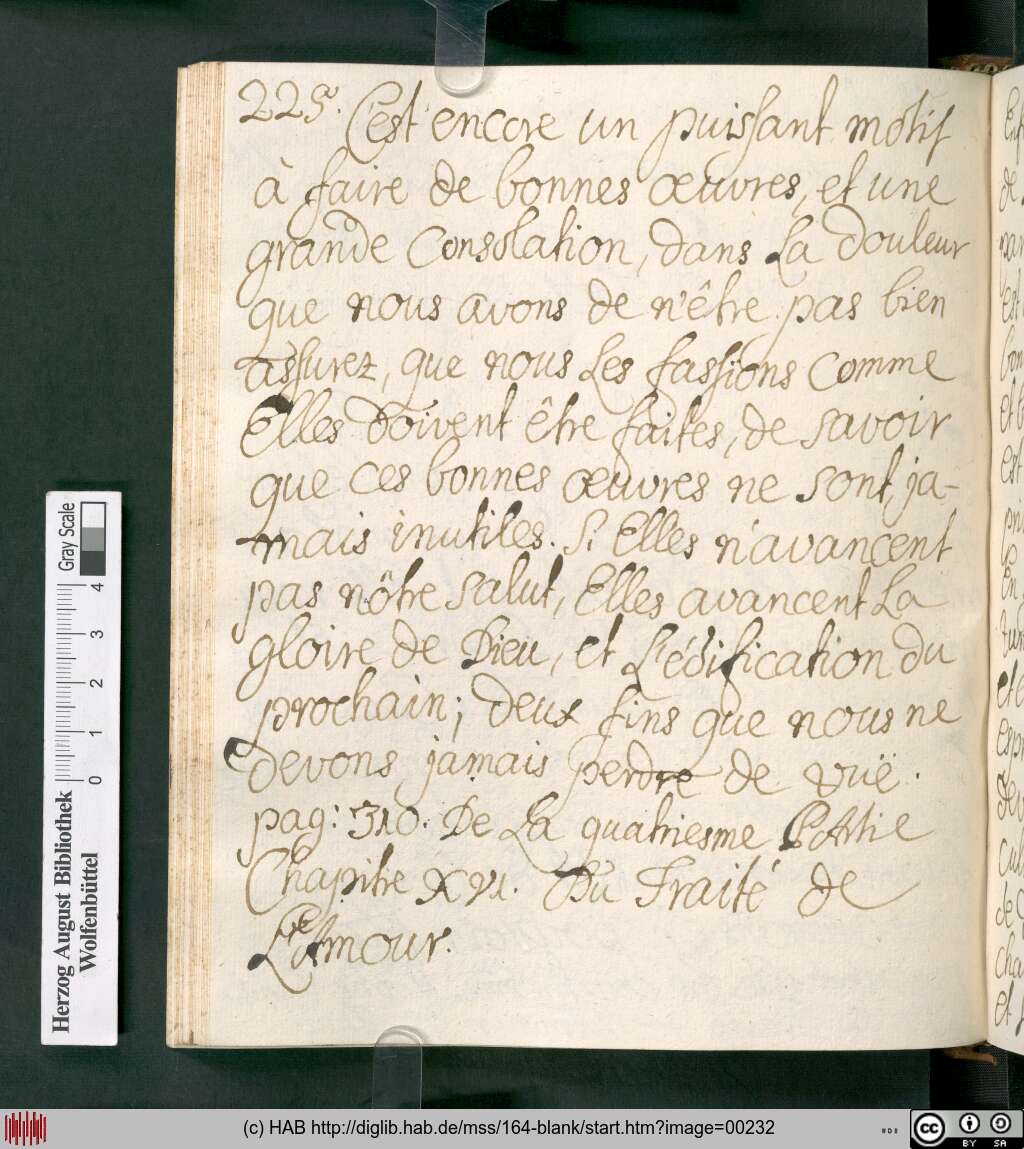 225. C'est encore un puissant motif
à faire de bonnes œuvres, et une
grande Consolation, dans La douleur
que nous avons de n'être pas bien
assurez, que nous Les fassions comme
Elles doivent être faites, de savoir
que ces bonnes œuvres ne sont ja-
mais inutiles. Si Elles n'avancent
pas nôtre salut, Elles avancent La
gloire de Dieu, et L'édification du
prochain; deux fins que nous ne
devons jamais perdre de vuë.
pag: 310. De La quatriesme Partie
Chapitre XVI. Du Traité de
L'Amour.
Gray Scale
4
3
2
1
0
Herzog August Bibliothek
Wolfenbüttel
(c) HAB http://diglib.hab.de/mss/164-blank/start.htm?image=00232
cc BY SA